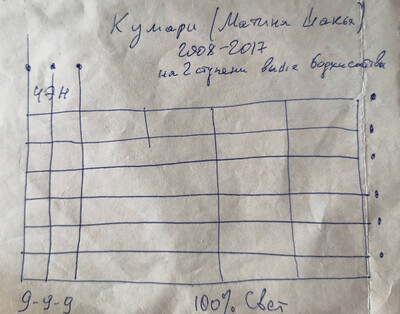 Кумари (Матина Шакья)
2008-2017
на 2 ступени выше бодхисатва
ЧЭН
9-9-9
100% Свет